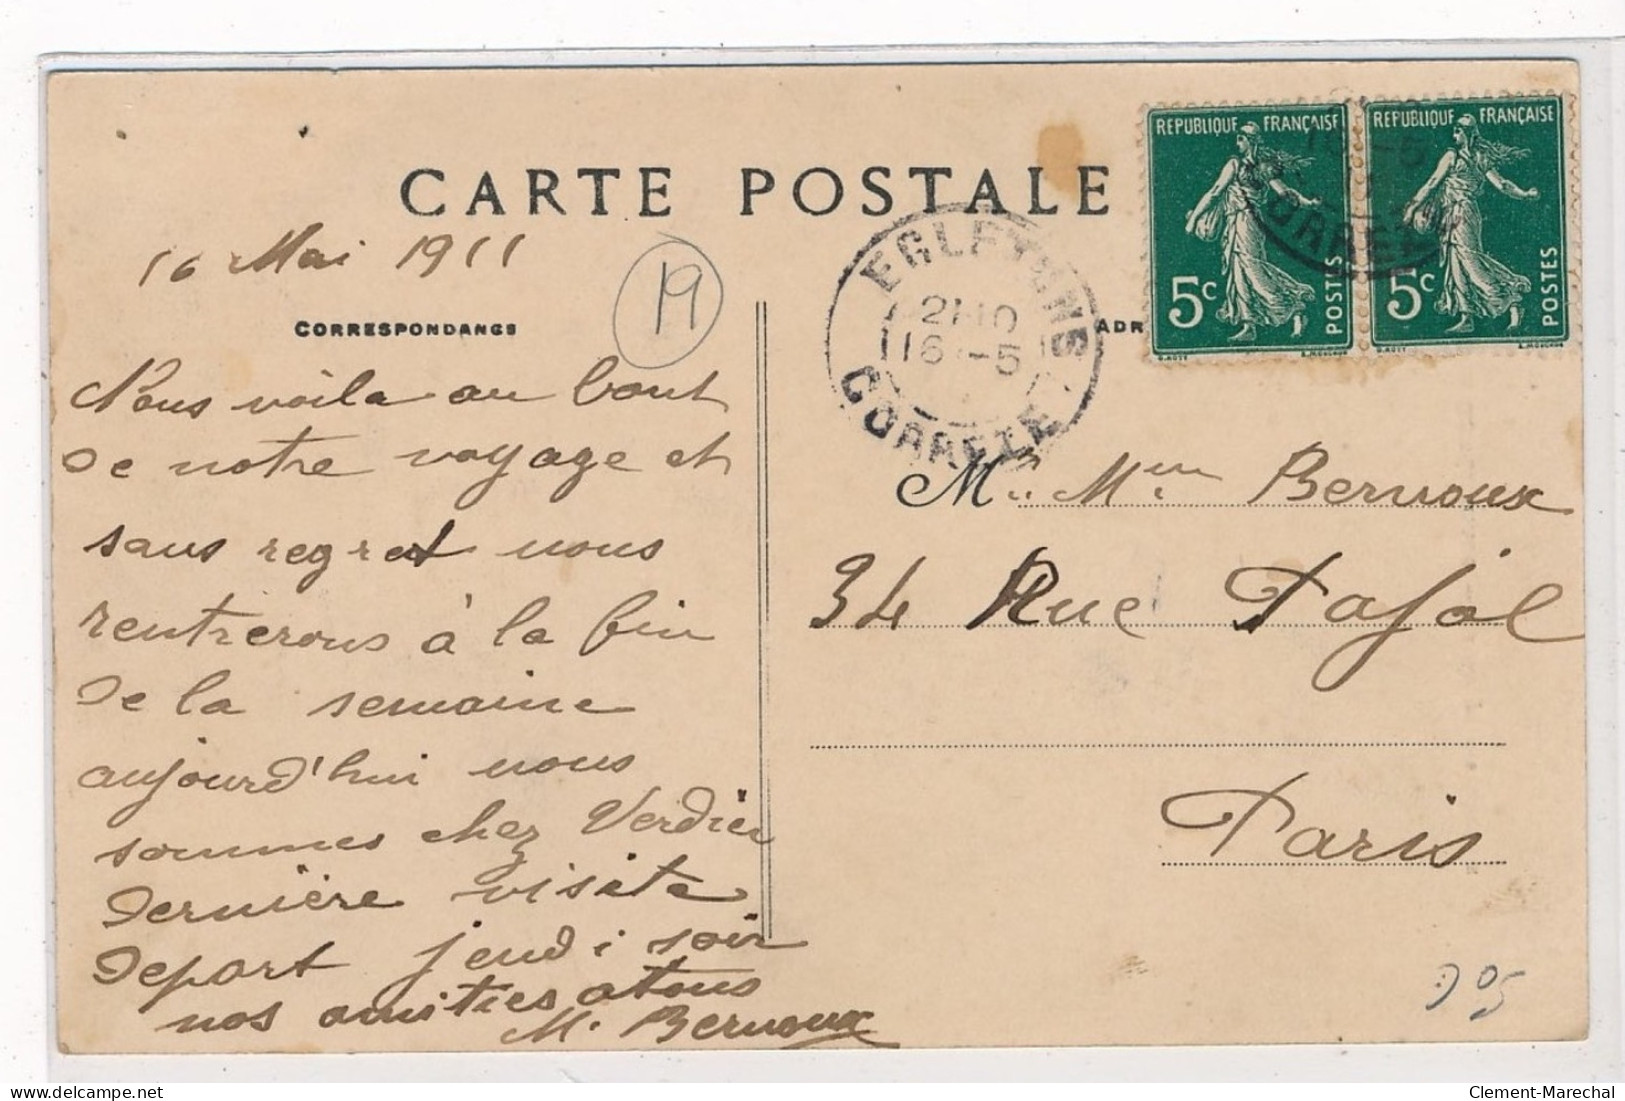 CARTE POSTALE
16 Mai 1911
19
CORRESPONDANCE
Nous voila au bout
de notre voyage et
sans regret nous
rentrerons à la fin
de la semaine
aujourd'hui nous
sommes chez Verdier
dernière visite
depart jeudi soir
nos amitiés a tous
M. Bernoux
EGLETONS
21 10
16 -5
CORREZE
ADR
REPUBLIQUE FRANÇAISE
5c
POSTES
REPUBLIQUE FRANÇAISE
5c
POSTES
-5
CORREZE
M. Mme Bernoux
34 Rue Pajol
Paris
delcampe.net
Clement-Marechal